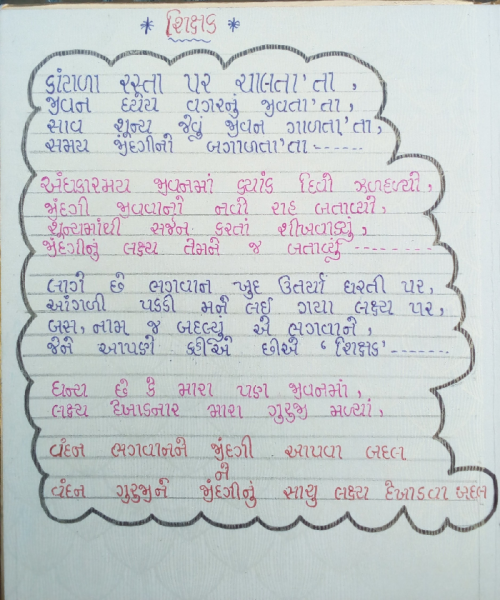 * શિક્ષક *
કાંટાળા રસ્તા પર ચાલતા'તા,
જીવન ધ્યેય વગરનું જીવતા'તા,
સાવ શૂન્ય જેવું જીવન ગાળતા'તા,
સમય જીંદગીનો બગાળતા'તા------
અંધકારમય જીવનમાં ક્યાંક દિવો ઝળહળ્યો,
જીંદગી જીવવાનો નવી રાહ બતાવ્યો,
શૂન્યમાંથી સર્જન કરતાં શીખવાડ્યું,
જીંદગીનું લક્ષ્ય તેમને જ બતાવ્યું ----------
લાગે છે ભગવાન ખુદ ઉતર્યા ધરતી પર,
આંગળી પકડી મને લઈ ગયા લક્ષ્ય પર,
બસ, નામ જ બદલ્યું એ ભગવાને,
જેને આપણે કહીએ છીએ 'શિક્ષક'-------
ધન્ય છે કે મારા પણ જીવનમાં,
લક્ષ્ય દેખાડનાર મારા ગુરુજી મળ્યાં,
વંદન ભગવાનને જીંદગી આપવા બદલ
ને
વંદન ગુરુજીને જીંદગીનું સાચુ લક્ષ્ય દેખાડવા બદલ